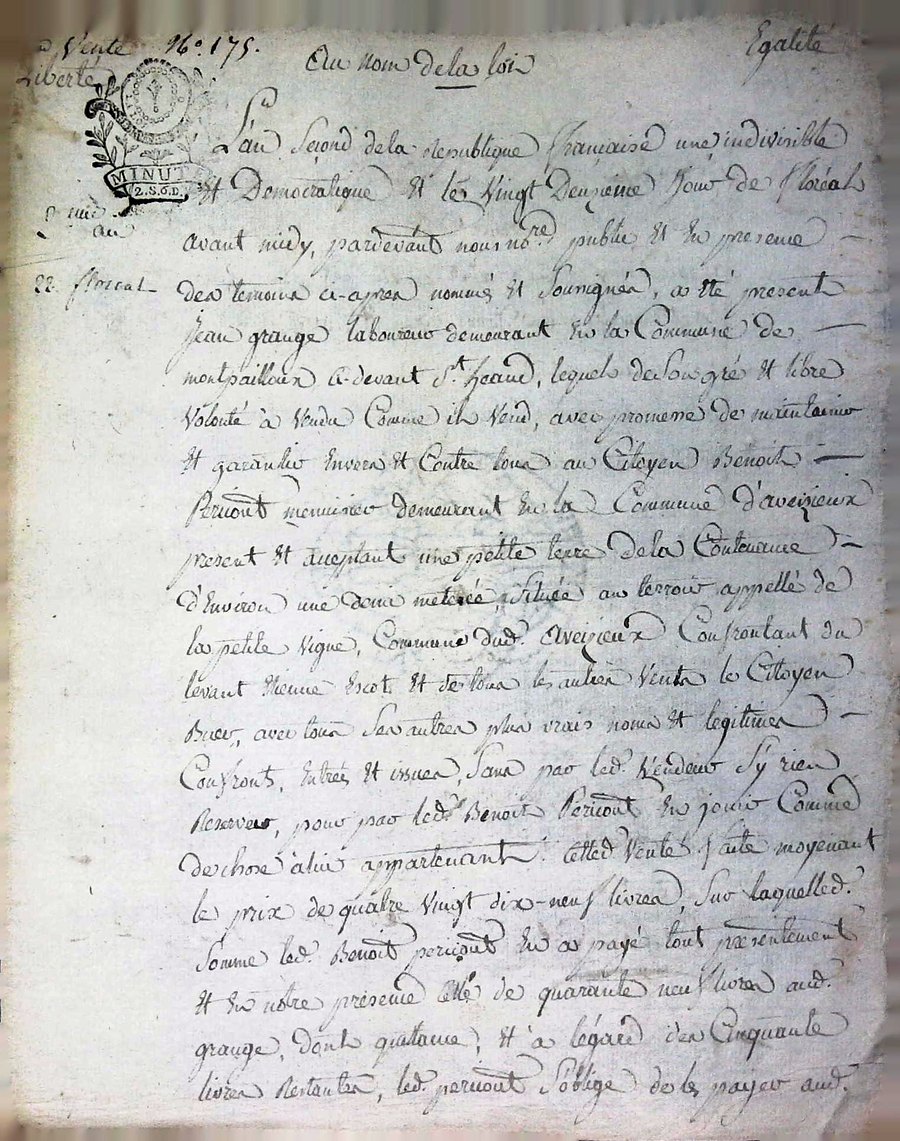 Vente N°. 175.
Egalité
Liberté
Au nom de la loi
MINUTE
2.S.6.D.
22. floreal
L'an second de la republique française une indivisible
et Democratique et le vingt Deuxieme jour de floréal
avant midy, pardevant nous no.re public et en presence
des temoins ci-apres nommés et soussignés, a eté present
jean grange laboureur demeurant en la Commune de
montpailloux ci-devant St. heand, lequel de son gré et libre
volonté à vendu Comme il vend, avec promesse de maintenir
et garantir envers et Contre tous au Citoyen Benoit
Pericont menuisier demeurant en la Commune d'aveizieux
present et acceptant une petite terre de la Contenance
d'environ une demi meterée, située au terroir appellé de
la petite vigne, Commune dud. aveizieux Confrontant du
levant etienne escot et de tous les autres vents le Citoyen
avec tous ses autres plus vrais noms et legitimes
Confronts, entrées et issues, sans par led. vendeur s'y rien
reserver, pour par led. Benoit Pericont en jouir Comme
de chose à lui appartenant. cetted. vente faite moyenant
le prix de quatre vingt dix-neuf livres, sur laquelled.
somme led. Benoit pericont en a payé tout presentement
et en notre presence celle de quarante neuf livres aud.
grange, dont quitance, et à légard des Cinquante
livres restantes, led. pericont s'oblige de les payer aud.